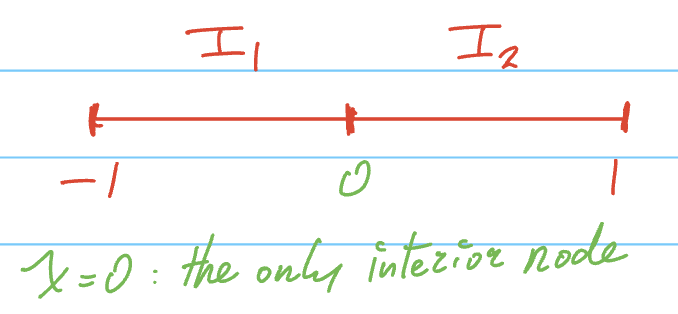 I₁ I₂
-1 0 1
x=0 : the only interior node